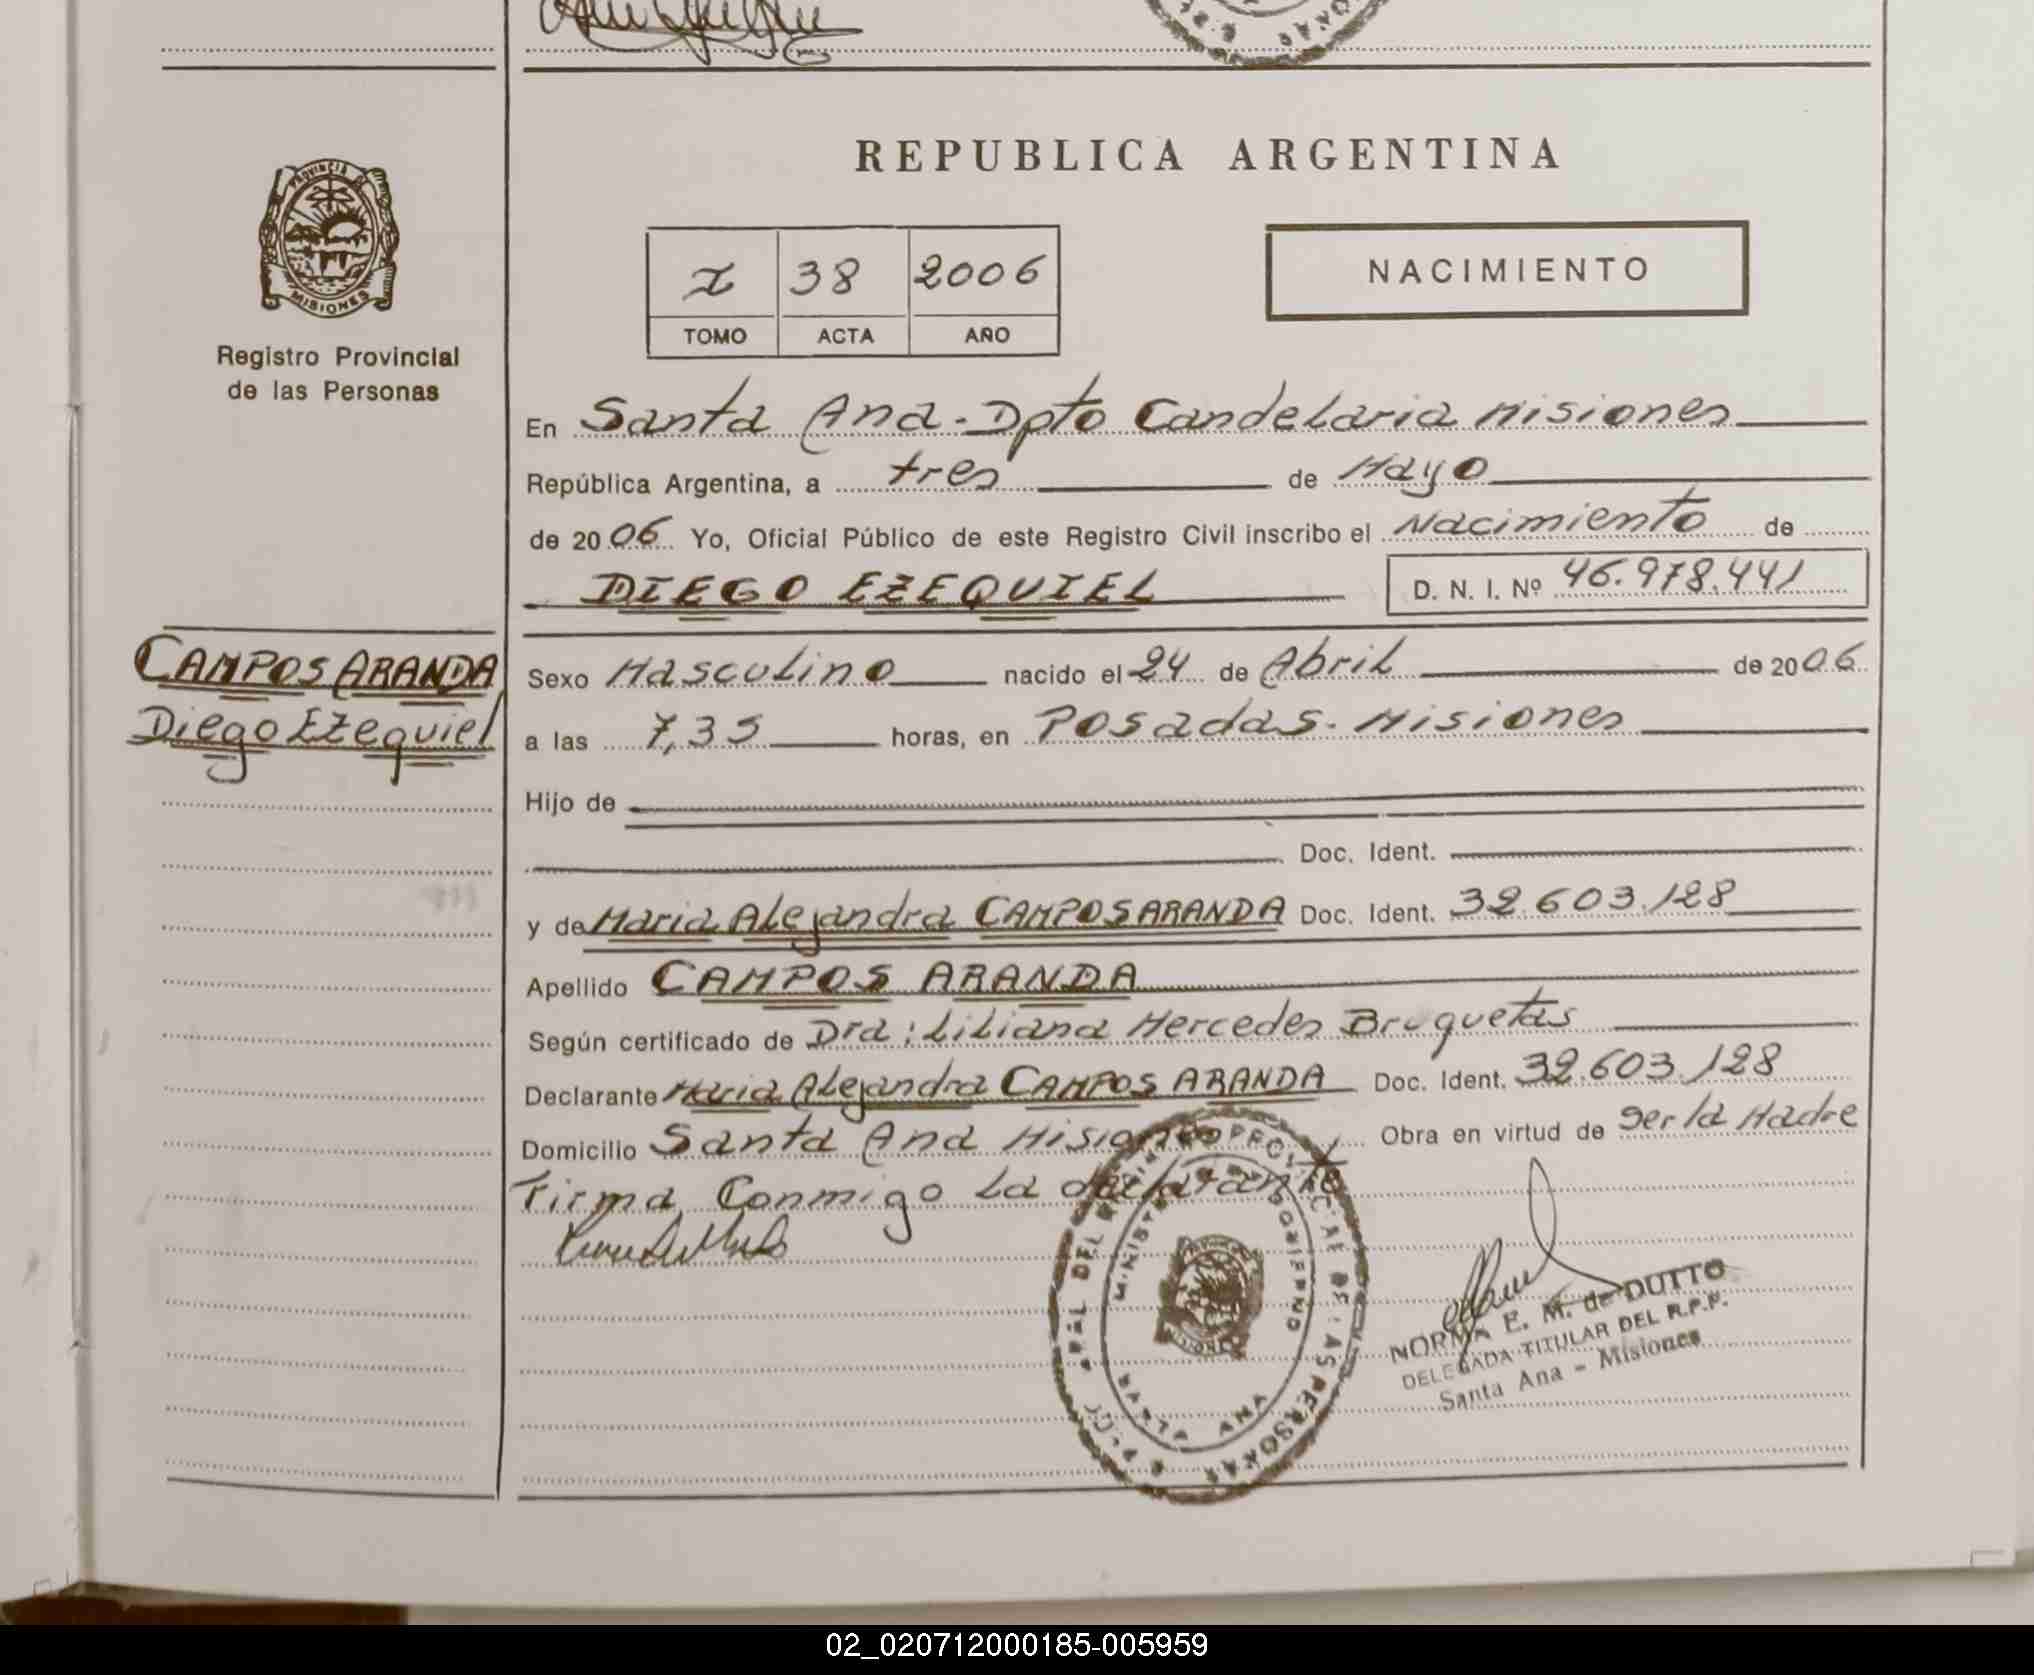 REPUBLICA ARGENTINA
PROVINCIA DE
MISIONES
Registro Provincial
de las Personas
I 38 2006
TOMO ACTA AÑO
NACIMIENTO
En Santa Ana-Dpto Candelaria Misiones
República Argentina, a tres de Mayo
de 2006 Yo, Oficial Público de este Registro Civil inscribo el Nacimiento de
DIEGO EZEQUIEL D. N. I. Nº 46.978.441
CAMPOS ARANDA
Diego Ezequiel
Sexo Masculino nacido el 24 de Abril de 2006
a las 7,35 horas, en Posadas-Misiones
Hijo de
Doc. Ident.
y de Maria Alejandra CAMPOS ARANDA Doc. Ident. 32.603.128
Apellido CAMPOS ARANDA
Según certificado de Dra: Liliana Mercedes Bruquetas
Declarante Maria Alejandra CAMPOS ARANDA Doc. Ident. 32.603.128
Domicilio Santa Ana Misiones Obra en virtud de ser la Madre
Firma Conmigo La declarante
NORMA E. M. de DUTTO
DELEGADA TITULAR DEL R.P.P.
Santa Ana - Misiones
02_020712000185-005959